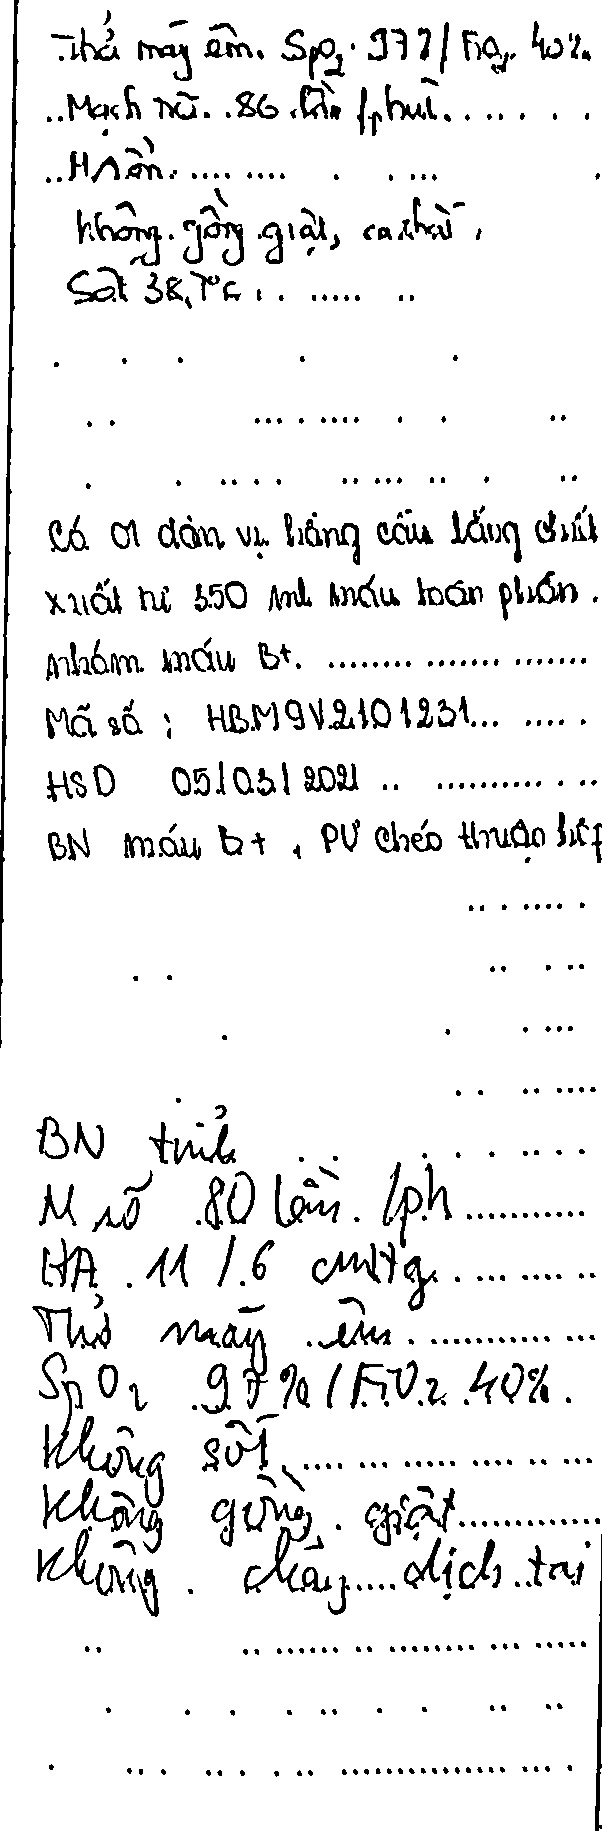 Thở máy êm. SpO2. 97%/ FiO2. 40%
Mạch rõ. 86 lần /phút
HA ổn.
không gồng giật, co thắt.
Sốt 38,7°C.
Có 01 đơn vị hồng cầu lắng chiết
xuất từ 350 ml máu toàn phần.
nhóm máu B+.
Mã số : HBM9V2101231
HSD 05/03/2021
BN máu B+, PƯ chéo thuận hợp
BN tỉnh
M rõ 80 lần /ph
HA 11/6 cmHg
Thở máy êm
SpO2 97% / FiO2 40%.
Không sốt
Không gồng giật
Không chảy dịch tai